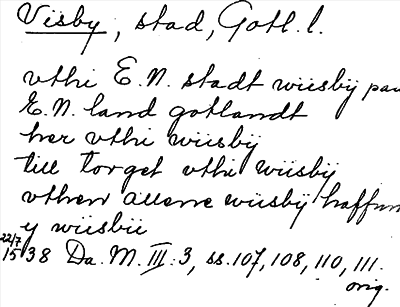 Visby, stad, Gotl. l.
vthi E.N. stadt wiisbÿ paa
E.N. land gotlandt
her vthi wiisbÿ
till torget vthi wiisbÿ
vthen allene wiisbÿ haffun
y wiisbü
22/7 1538 Da. M. III: 3, ss. 107, 108, 110, 111.
orig.